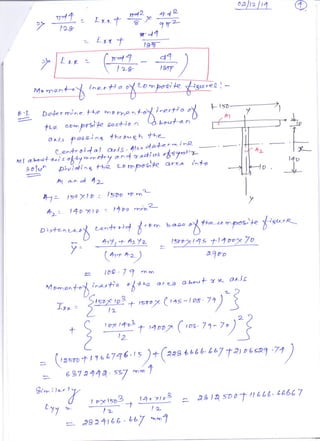 02/12/19 ①
⇒ πd⁴/128 = Lxx + πd²/8 × 4d²/9π²
= Lxx + πd⁴/18π
⇒ Lxx = (πd⁴/128 − d⁴/18π)
Moment of inertia of composite figures :-
Q.1 Determine the moment of inertia of
the composite section about an
axis passing through the
Centroidal axis. Also determine
MI about axis of symmetry and radius of gyratn
Solun Dividing the composite area into
A1 and A2
A1 = 150 x 10 = 1500 mm²
A2 = 140 x 10 = 1400 mm²
150
Y
A1
10
x
A2
140
10
Y
Distance of Centroid from base of the composite figure
ȳ = A1Y1 + A2Y2 / (A1 + A2) = 1500 x 145 + 1400 x 70 / 2900
= 108.79 mm
Moment of inertia of the area about xx axis
Ixx = {150 x 10³/12 + 1500 x (145 - 108.79)²}
+ {10 x 140³/12 + 1400 x (108.79 - 70)²}
= (12500 + 1966746.15) + (2286666.667 + 2106529.74)
= 6372442.557 mm⁴
Similarly
Lyy = 10 x 150³/12 + 140 x 10³/12 = 2812500 + 11666.66667
= 2824166.667 mm⁴